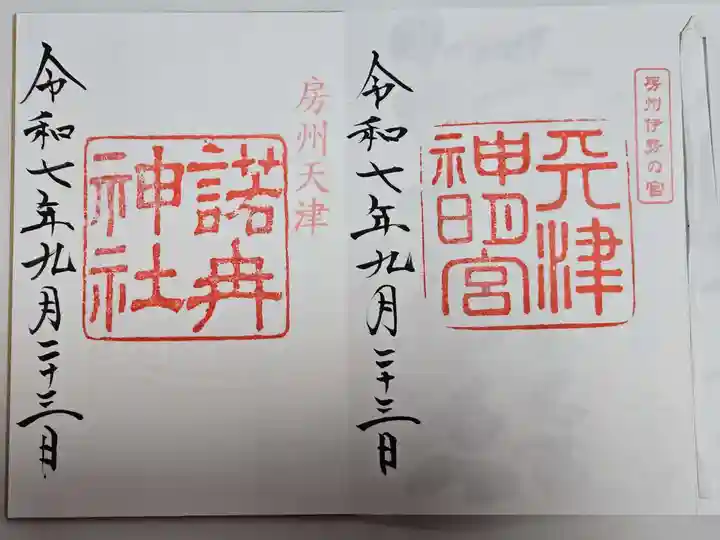 房州伊勢の宮
天津
神明宮
令和七年九月二十三日
房州天津
諾冉
神社
令和七年九月二十三日